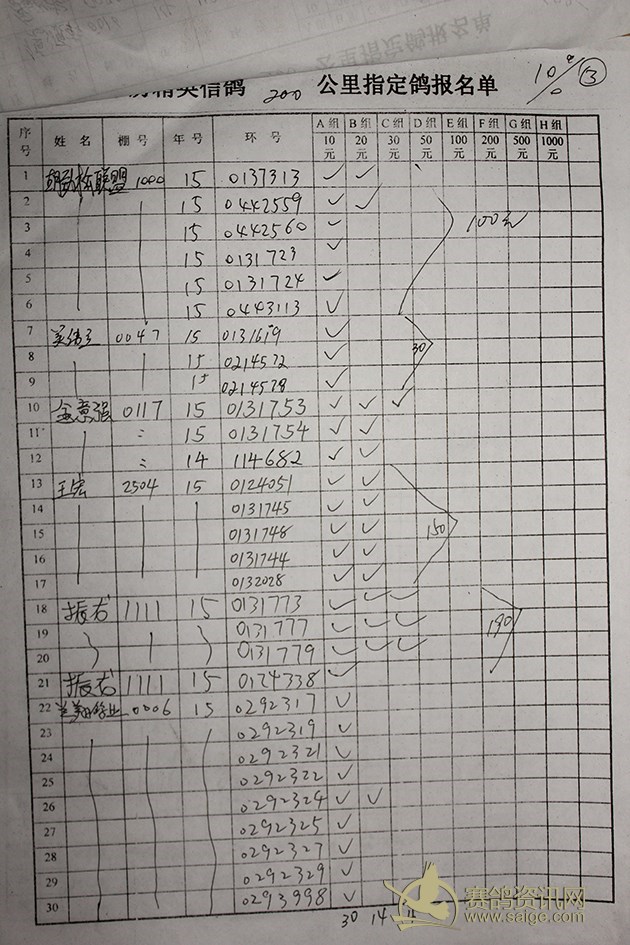 精英信鸽 200 公里指定鸽报名单 10/8 ③
序号 姓名 棚号 年号 环号 A组 10元 B组 20元 C组 30元 D组 50元 E组 100元 F组 200元 G组 500元 H组 1000元
1 联盟 1000 15 0137313 ✓ ✓
2 15 0442559 ✓ ✓
3 15 0442560 ✓ 100元
4 15 0131723 ✓
5 15 0131724 ✓
6 15 0443113 ✓
7 0047 15 0131619 ✓
8 15 0214572 ✓ 30
9 15 0214578 ✓
10 金意强 0117 15 0131753 ✓ ✓ ✓
11 15 0131754 ✓ ✓
12 14 114682 ✓ ✓
13 王宏 2504 15 0124051 ✓ ✓
14 0131745 ✓ ✓
15 0131748 ✓ ✓ 150
16 0131744 ✓ ✓
17 0132028 ✓ ✓
18 振龙 1111 15 0131773 ✓ ✓ ✓
19 0131777 ✓ ✓ ✓ 190
20 0131779 ✓ ✓ ✓
21 振龙 1111 15 0174338 ✓
22 0006 15 0292317 ✓
23 0292319 ✓
24 0292321 ✓
25 0292322 ✓
26 0292324 ✓ ✓
27 0292325 ✓
28 0292327 ✓
29 0292329 ✓
30 0293998 ✓
30 14
赛鸽资讯网
www.saige.com